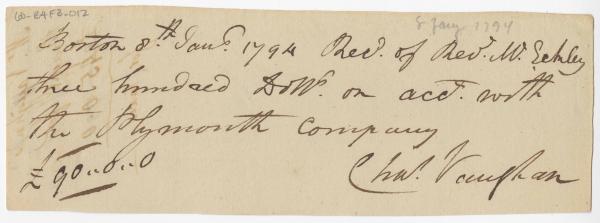 60-E4F3-012
8 Jany 1794
Boston 8.th Jany. 1794 Recd. of Revd. Mr. Eckley
three hundred Dolls. on acct. with
the Plymouth company
£90..0..0
Chas. Vaughan